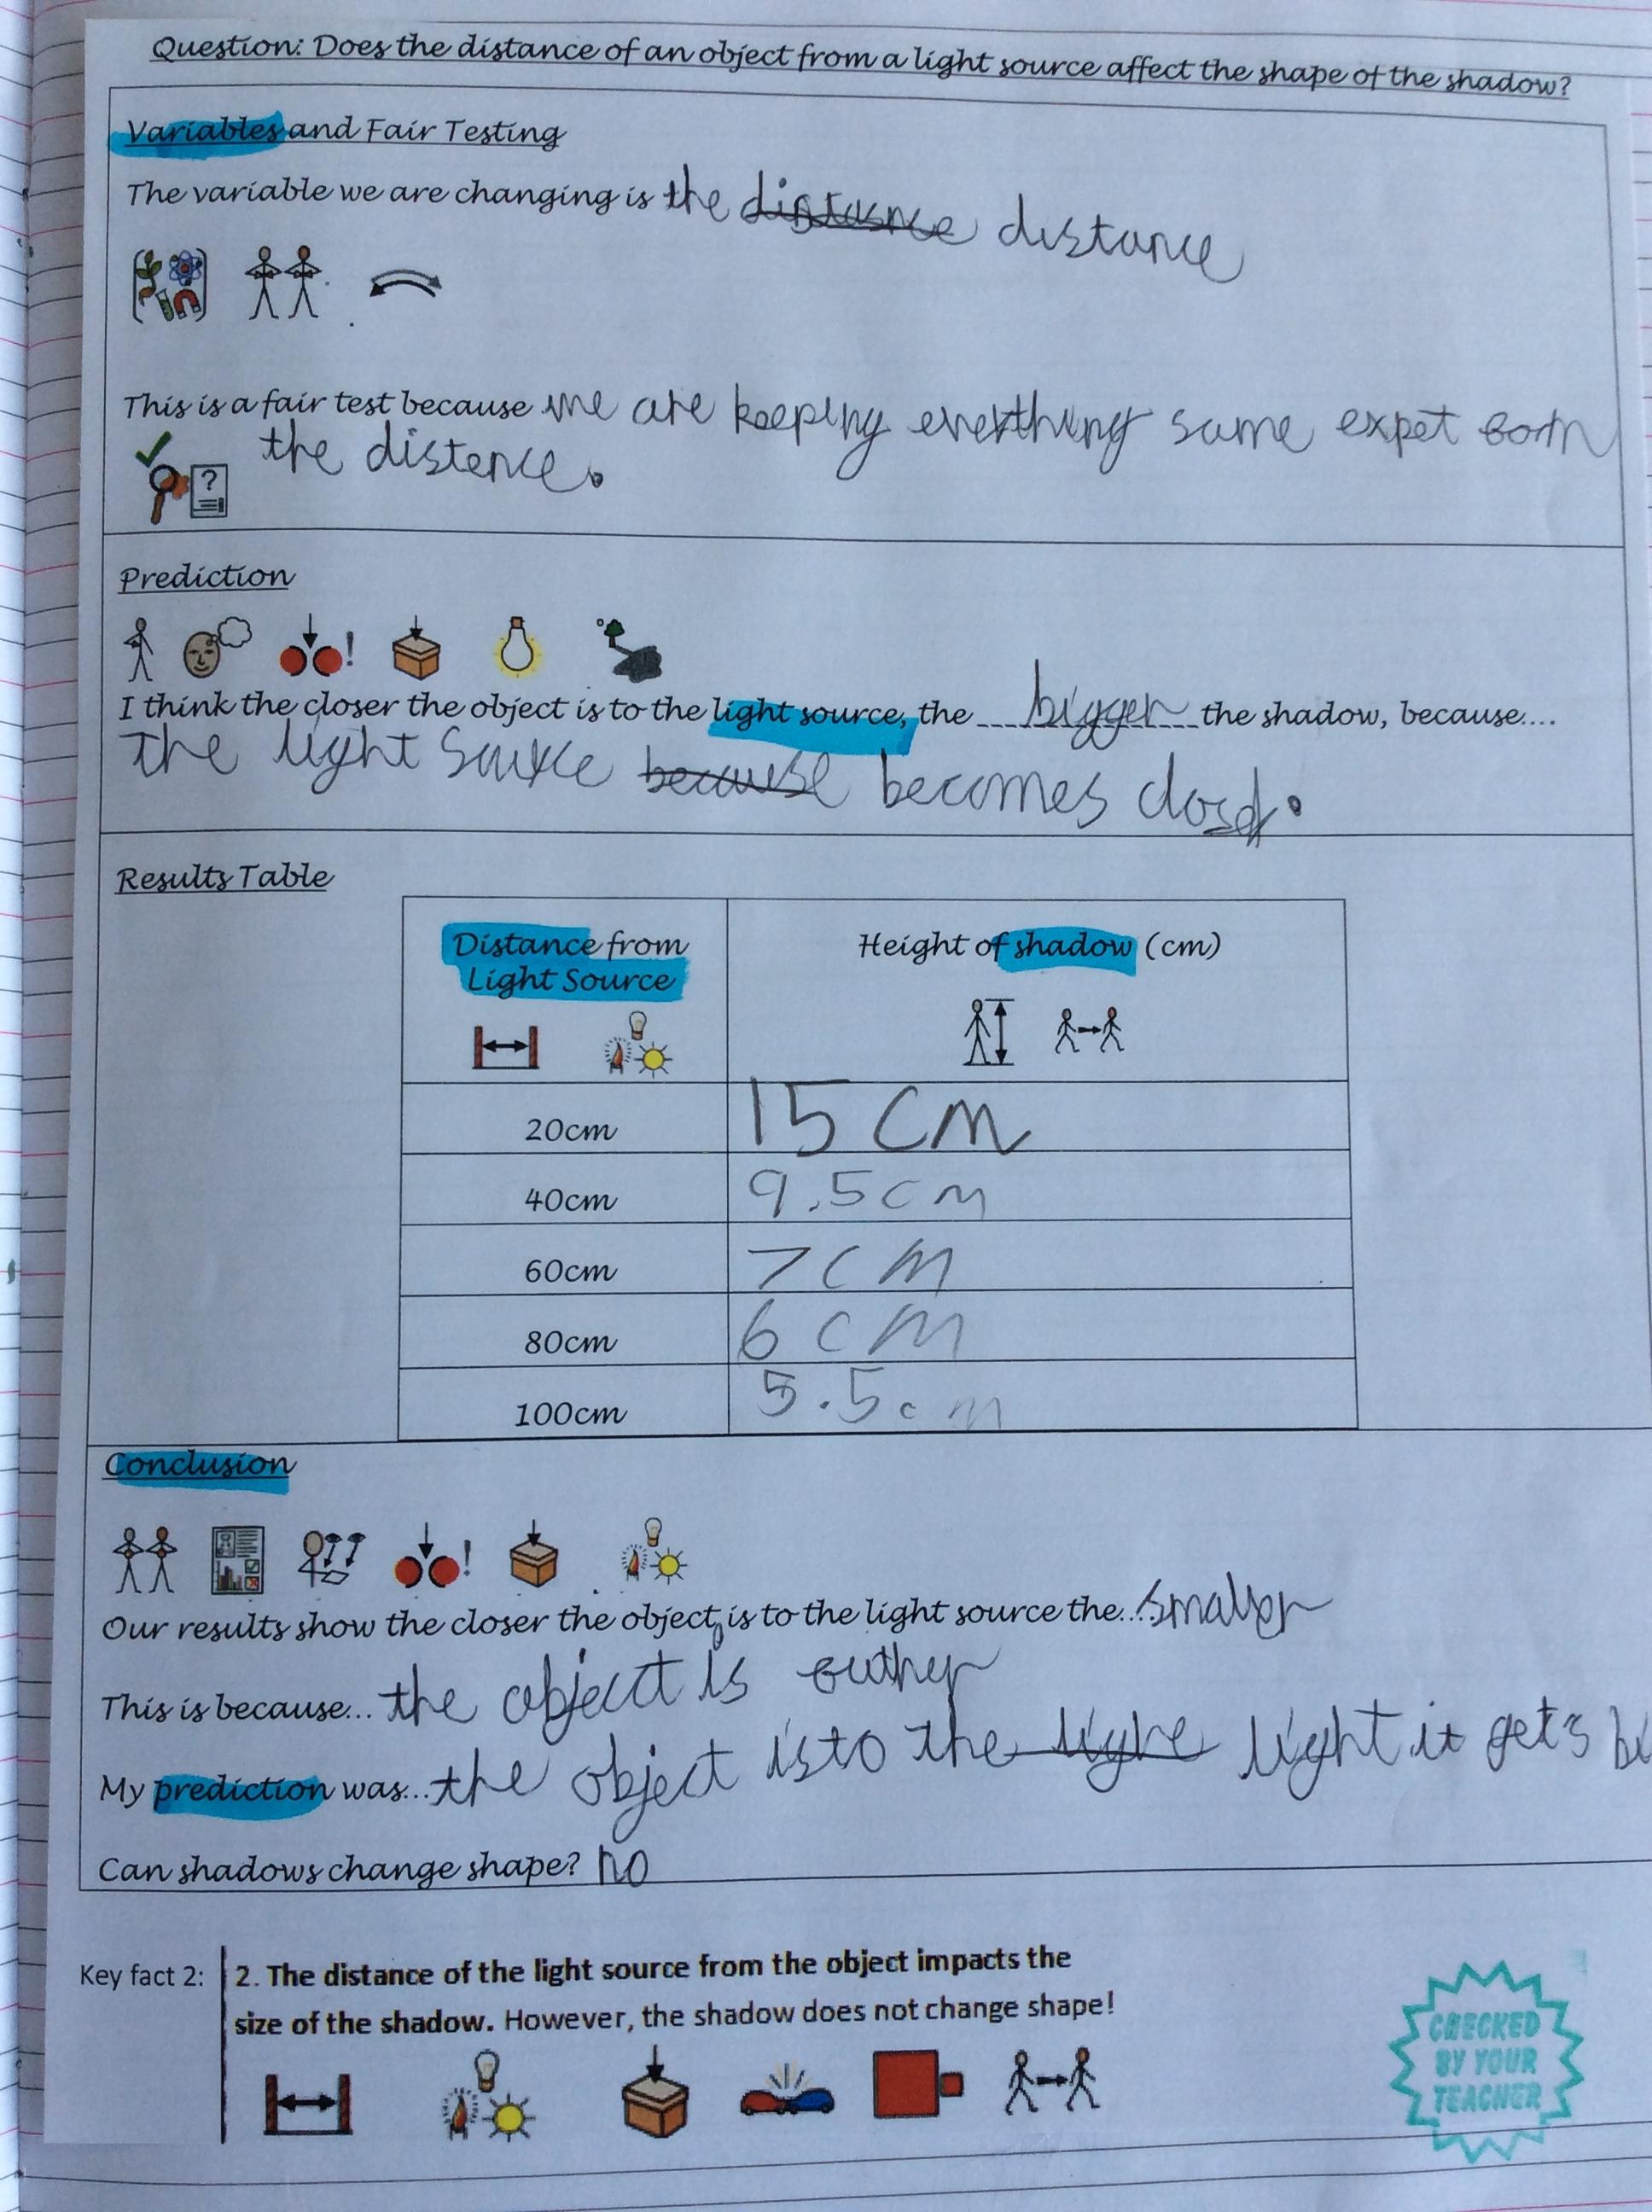 Question: Does the distance of an object from a light source affect the shape of the shadow?
Variables and Fair Testing
The variable we are changing is the distance
This is a fair test because we are keeping everthing same expet
the distence.
?
Prediction
!
I think the closer the object is to the light source, the bigger the shadow, because....
The light source because becomes closer.
Results Table
Distance from Light Source
Height of shadow (cm)
20cm 15 cm
40cm 9.5cm
60cm 7cm
80cm 6cm
100cm 5.5cm
Conclusion
!
Our results show the closer the object is to the light source the... smaller
This is because... the object is
My prediction was... the object is to the light it gets
Can shadows change shape? no
Key fact 2: 2. The distance of the light source from the object impacts the
size of the shadow. However, the shadow does not change shape!
CHECKED
BY YOUR
TEACHER